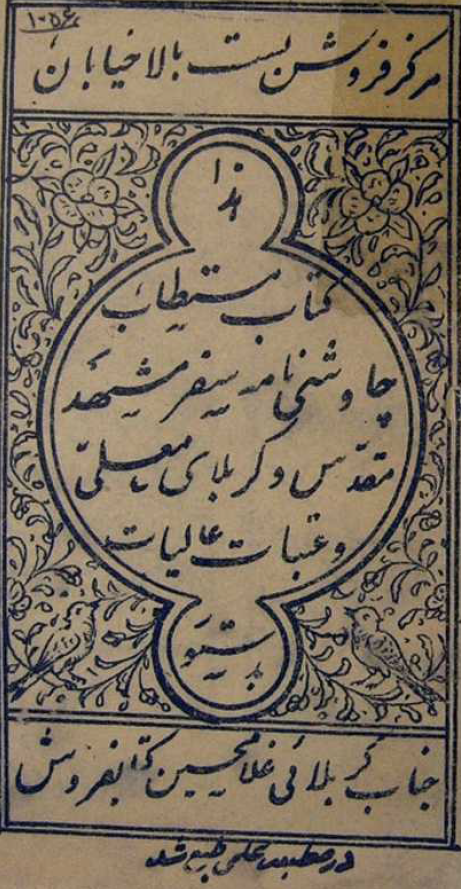 ۱۰۵۶
مرکز فروش بست بالا خیابان
هذا
کتاب مستطاب
چاوشی نامه سفر مشهد
مقدس و کربلای معلی
و عتبات عالیات
بدستور
جناب کربلائی غلامحسین کتابفروش
در مطبعه علمی طبع شد